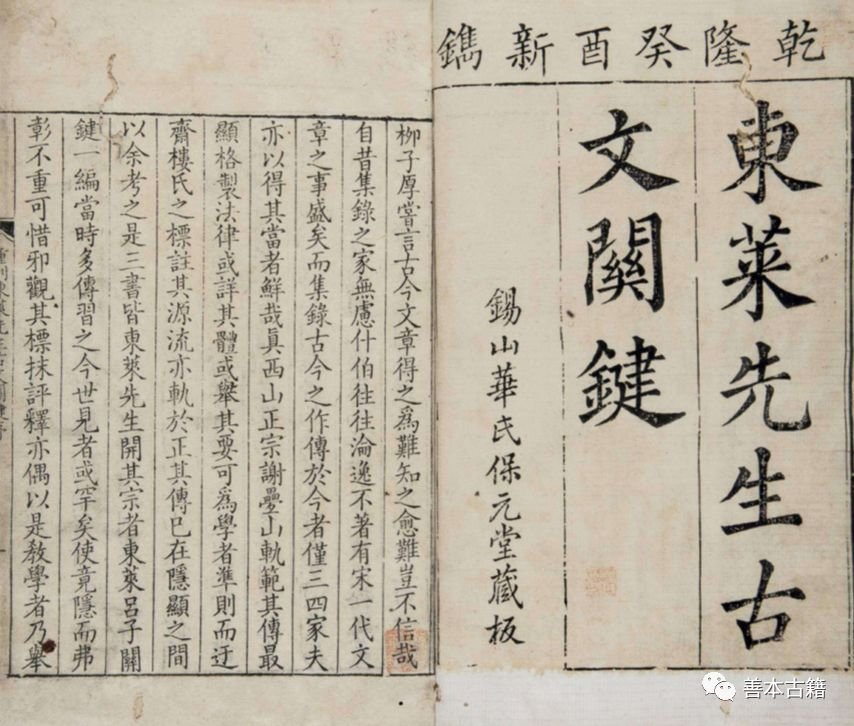 乾隆癸酉新鐫
東萊先生古
文關鍵
錫山華氏保元堂藏板
柳子厚嘗言古今文章得之爲難知之愈難豈不信哉
自昔集錄之家無慮什伯往往淪逸不著有宋一代文
章之事盛矣而集錄古今之作傳於今者僅三四家夫
亦以得其當者鮮哉眞西山正宗謝疊山軌範其傳最
顯格製法律或詳其體或舉其要可爲學者準則而迂
齋樓氏之標註其源流亦軌於正其傳已在隱顯之間
以余考之是三書皆東萊先生開其宗者東萊呂子關
鍵一編當時多傳習之今世見者或罕矣使竟隱而弗
彰不重可惜邪觀其標抹評釋亦偶以是敎學者乃舉
善本古籍